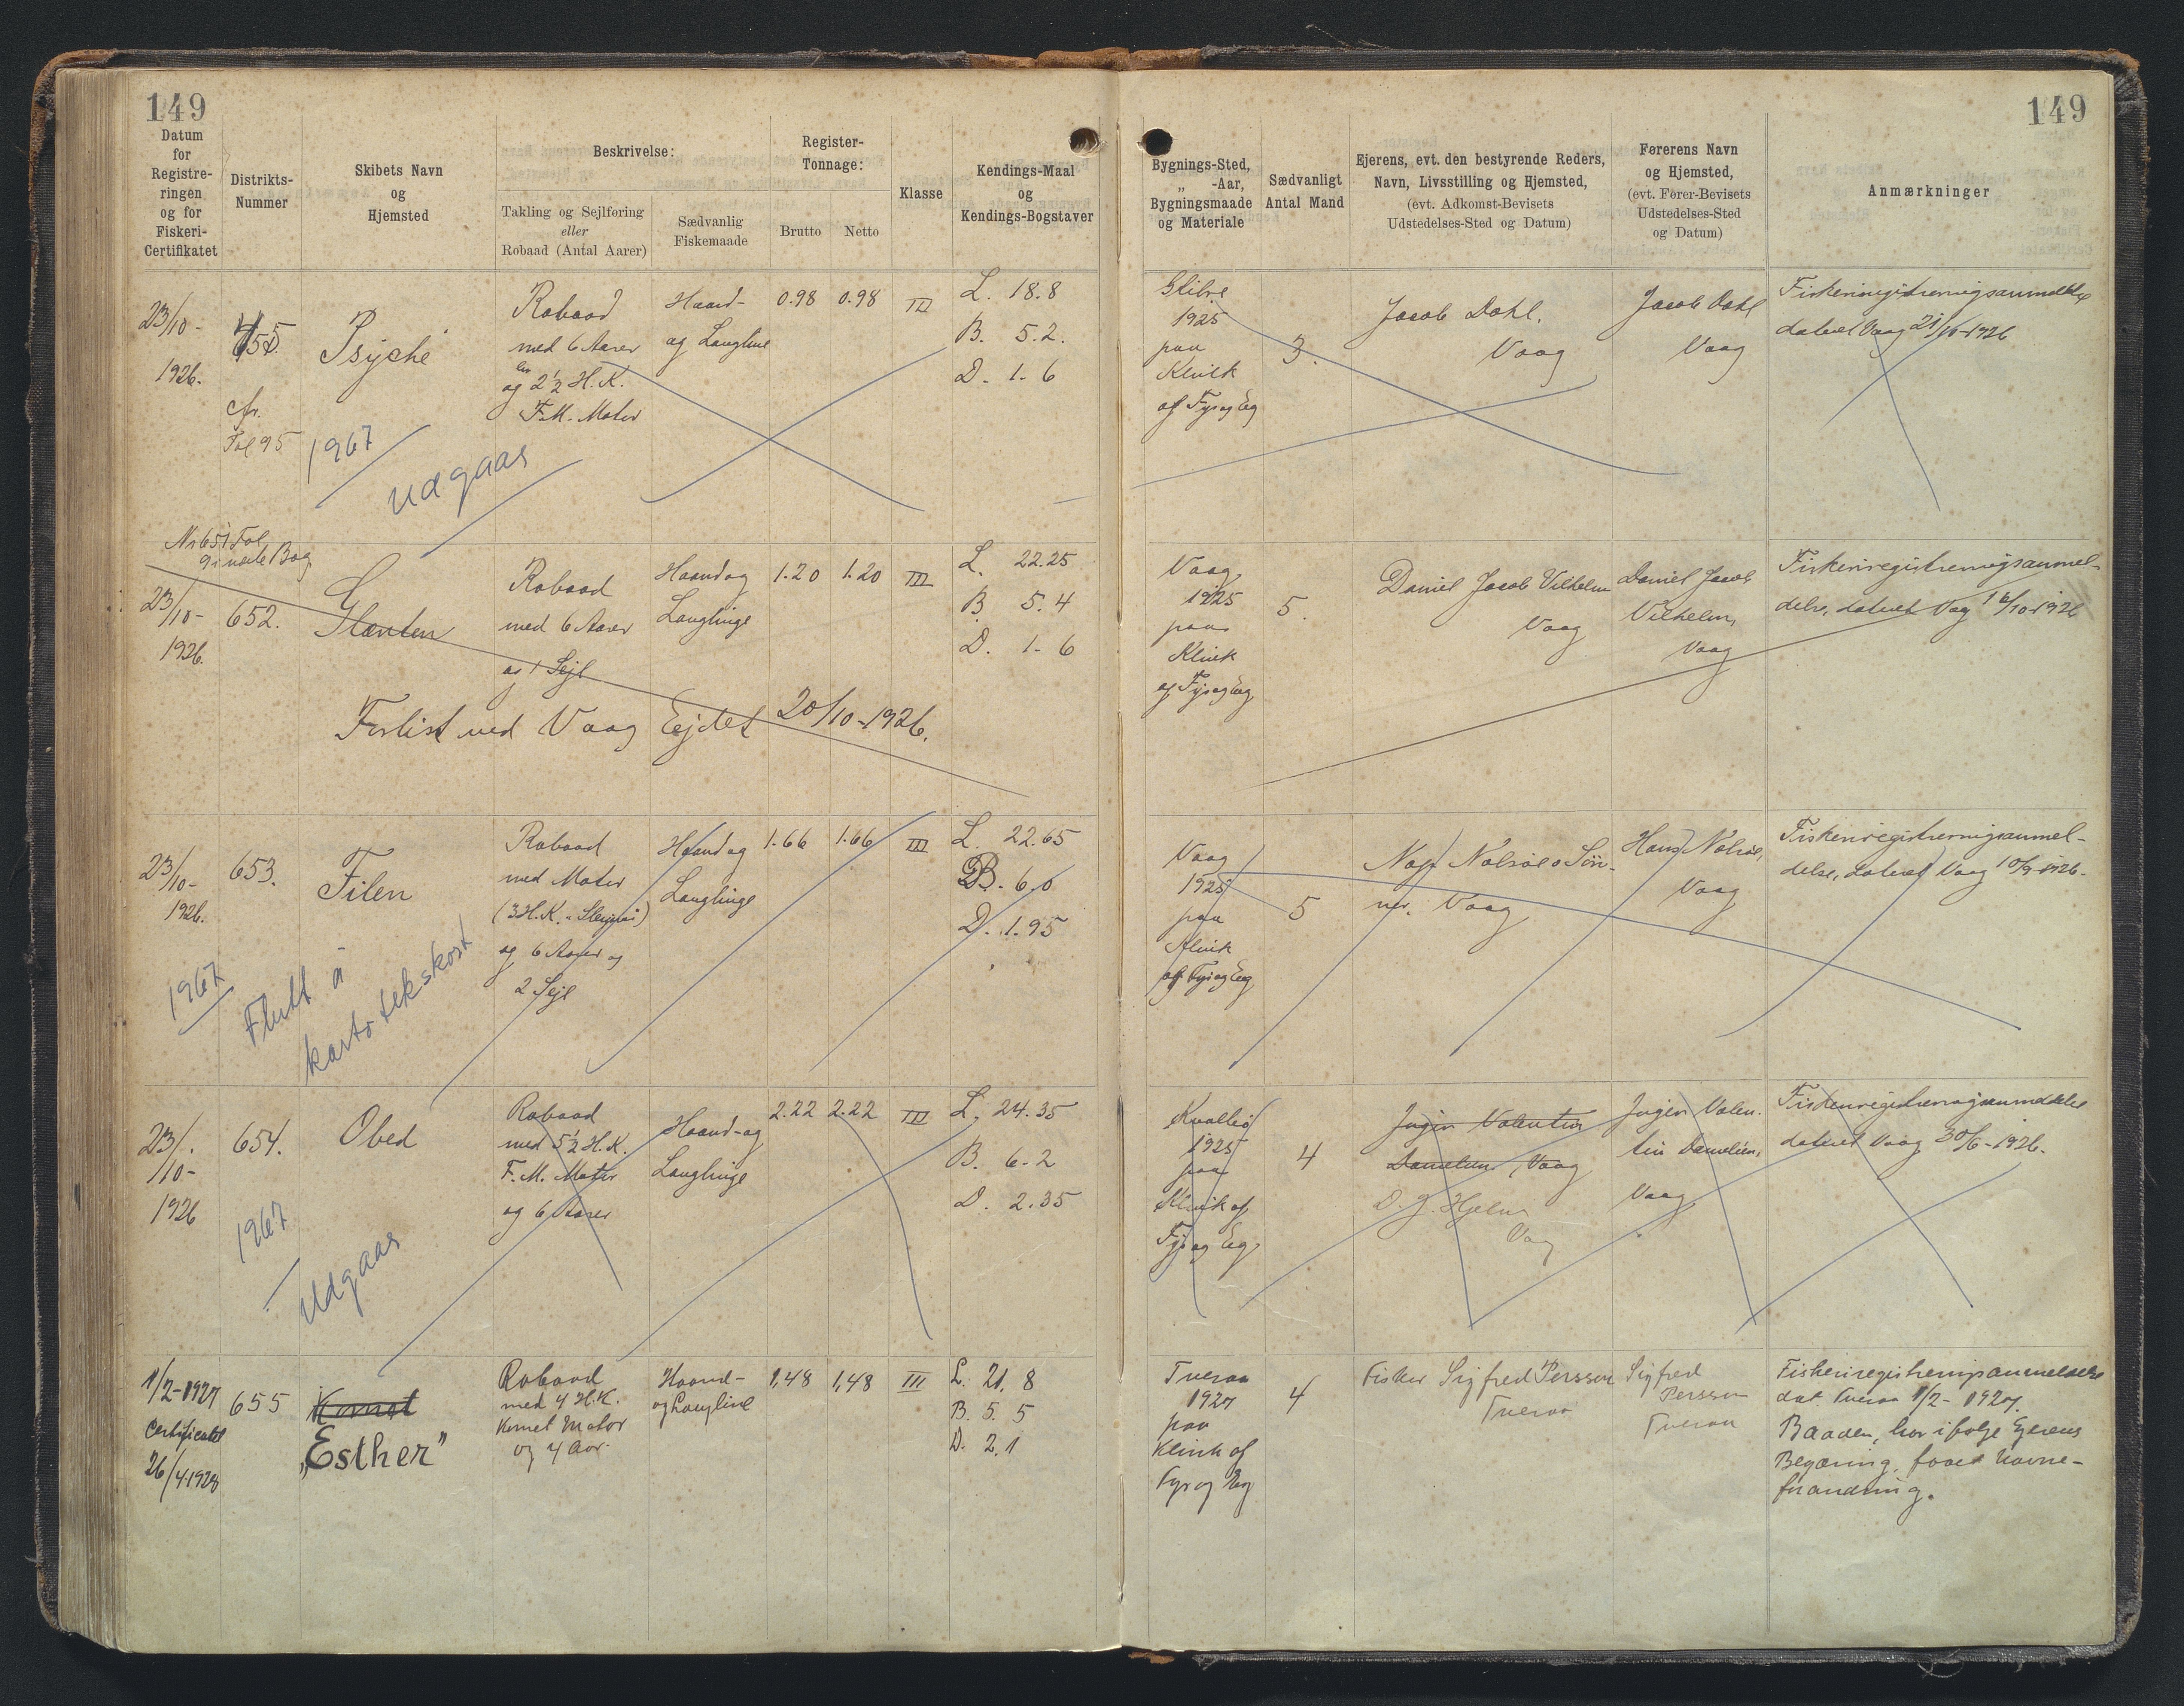 149
149
Datum
for
Registre-
ringen
og for
Fiskeri-
Certifikatet
Distrikts-
Nummer
Skibets Navn
og
Hjemsted
Beskrivelse:
Takling og Sejlføring
eller
Robaad (Antal Aarer)
Sædvanlig
Fiskemaade
Register-
Tonnage:
Brutto
Netto
Klasse
Kendings-Maal
og
Kendings-Bogstaver
Bygnings-Sted,
„ -Aar,
Bygningsmaade
og Materiale
Sædvanligt
Antal Mand
Ejerens, evt. den bestyrende Reders,
Navn, Livsstilling og Hjemsted,
(evt. Adkomst-Bevisets
Udstedelses-Sted og Datum)
Førerens Navn
og Hjemsted,
(evt. Fører-Bevisets
Udstedelses-Sted
og Datum)
Anmærkninger
23/10-
1926.
cfr.
Fol 95
Psyche
Robaad
med 6 Aarer
og 2½ H.K.
F.M. Motor
Haand-
og Langline
0.98
0.98
III
L. 18.8
B. 5.2.
D. 1.6
1925
paa
Klink
af Fyr og Eg
3.
Jacob Dahl.
Vaag
Jacob Dahl
Vaag
Fiskeriregistreringsanmeldelse
dateret Vaag 21/10-1926
1967
udgaar
Nr 651 Fol
9 i næste Bog
23/10-
1926.
652.
Glenten
Robaad
med 6 Aarer
og 1 Sejl
Haand og
Langlinge
1.20
1.20
III
L. 22.25
B. 5.4
D. 1.6
Vaag
1925
paa
Klink
af Fyr og Eg
5.
Daniel Jacob Vilhelm
Vaag
Daniel Jacob
Vilhelm,
Vaag
Fiskeriregistreringsanmel-
delse, dateret Vaag 16/10-1926
Forlist ved Vaag Ejdet 20/10-1926.
23/10-
1926.
653.
Filen
Robaad
med Motor
(3 H.K.
og 6 Aarer og
2 Sejl
Haand og
Langlinge
1.66
1.66
III
L. 22.65
B. 6.0
D. 1.95
Vaag
1925
paa
Klink
af Fyr og Eg
5
Nolsøe & Søn-
ner. Vaag
Hans Nolsøe,
Vaag
Fiskeriregistreringsanmel-
delse, dateret Vaag 10/9-1926.
1967
Flutt á
kartotekskort
23/10-
1926
654.
Obed
Robaad
med 5½ H.K.
F.M. Motor
og 6 Aarer
Haand- og
Langlinge
2.22
2.22
III
L. 24.35
B. 6.2
D. 2.35
Kvalbø
1925
paa
Klink af
Fyr og Eg
4
Valentin
Danielsen, Vaag
D. J. Hjelm
Vaag
Valen-
tin Danielsen,
Vaag
Fiskeriregistreringsanmeldelse
dateret Vaag 30/6-1926.
1967
Udgaar
1/2-1927
Certifikatet
26/4-1928
655
Komet
„Esther"
Robaad
med 4 H.K.
Komet Motor
og 4 Aar.
Haand-
og Langline
1,48
1,48
III
L. 21,8
B. 5.5
D. 2.1
Tveraa
1927
paa
Klink af
Fyr og Eg
4
Fisker Sigfred Persson
Tveraa
Sigfred
Persson
Tveraa
Fiskeriregistreringsanmeldelse
dat. Tveraa 1/2-1927.
Baaden har ifølge Ejerens
Begæring, faaet Navne-
forandring.